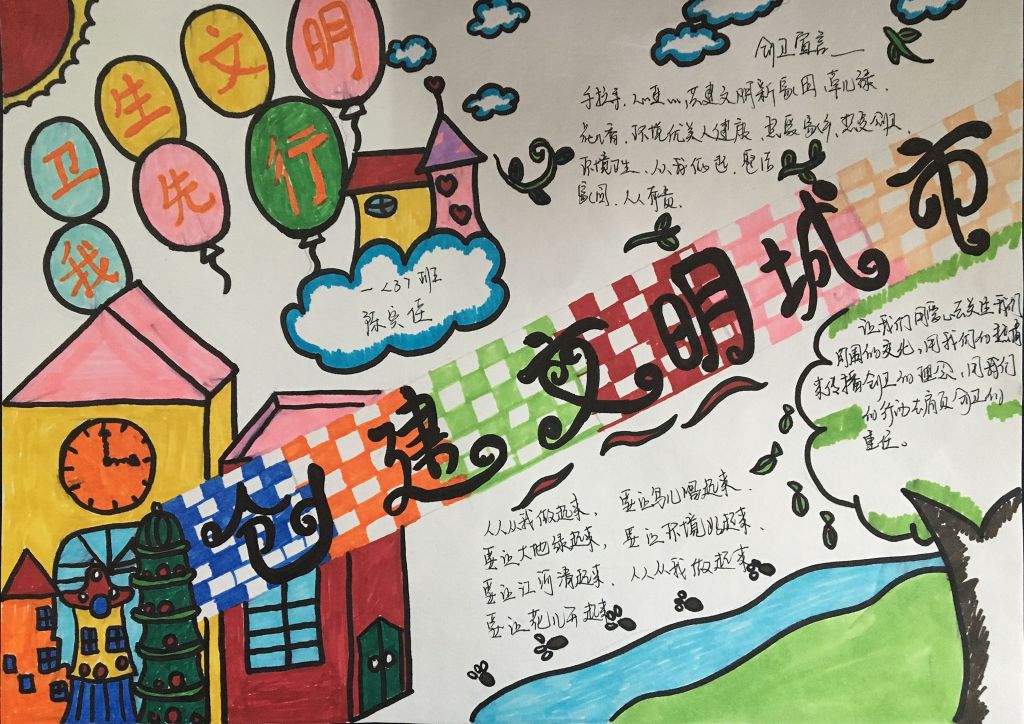 卫生文明
我先行
创卫宣言
手拉手，心连心，共建文明新家园，草儿绿，
花儿香，环境优美人健康，热爱家乡，热爱
环境卫生，从我做起，整洁
家园，人人有责。
一〈3〉班
创建文明城市
让我们用爱心去关注我们
周围的变化，用我们的热情
来传播创卫的理念，用我们
的行动去肩负创卫的
重任。
人人从我做起来，要让鸟儿唱起来，
要让大地绿起来，要让环境美起来，
要让江河清起来，人人从我做起来
要让花儿开起来